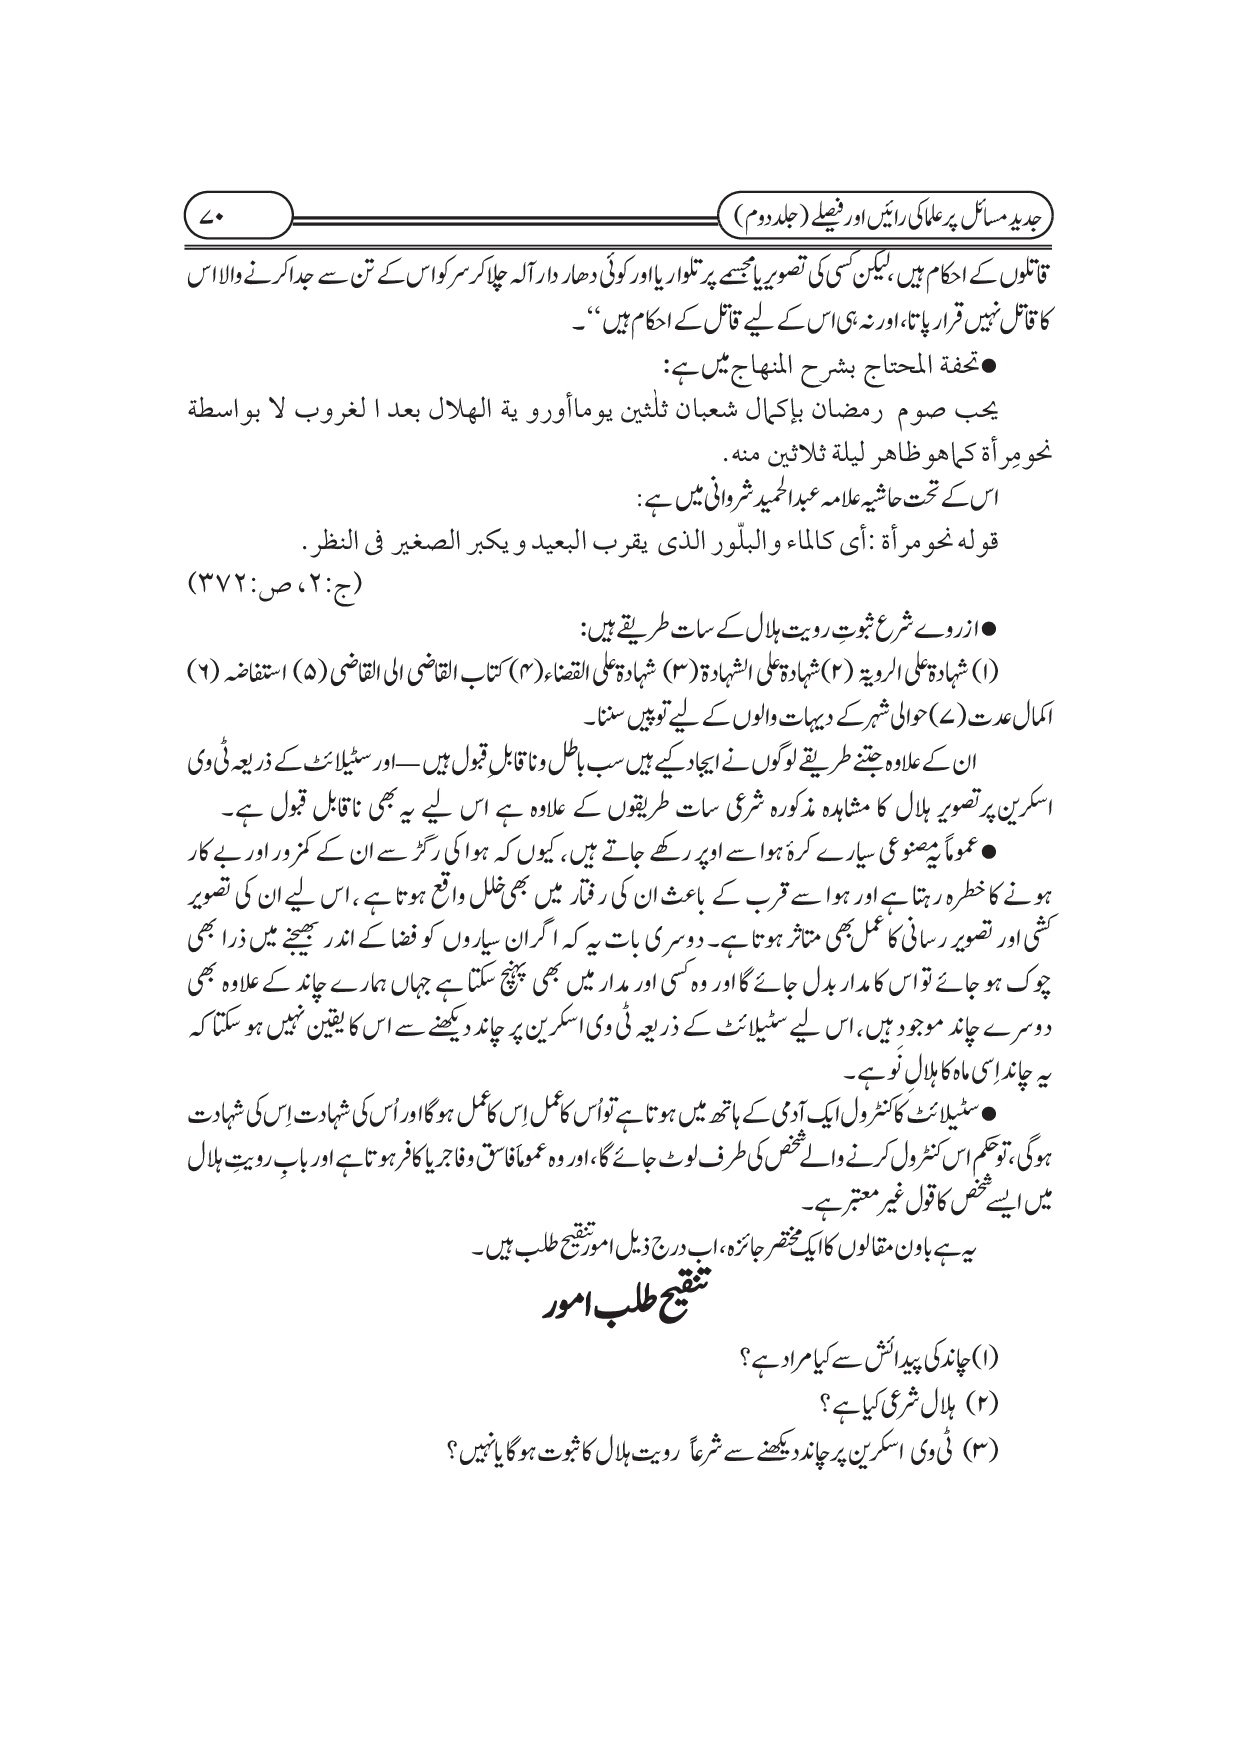 جدید مسائل پر علما کی رائیں اور فیصلے (جلد دوم)
۷۰
قاتلوں کے احکام ہیں، لیکن کسی کی تصویر یا مجسمے پر تلوار یا اور کوئی دھار دار آلہ چلا کر سر کو اس کے تن سے جدا کرنے والا اس
کا قاتل نہیں قرار پاتا، اور نہ ہی اس کے لیے قاتل کے احکام ہیں‘‘۔
●تحفة المحتاج بشرح المنهاج میں ہے:
يجب صوم رمضان بإكمال شعبان ثلٰثين يوما أو رو ية الهلال بعد ا لغروب لا بواسطة
نحو مِرأة كما هو ظاهر ليلة ثلاثين منه.
اس کے تحت حاشیہ علامہ عبدالحمید شروانی میں ہے:
قوله نحو مرأة :أى كالماء و البلّور الذى يقرب البعيد و يكبر الصغير فى النظر.
(ج:۲، ص:۳۷۲)
●از روے شرع ثبوتِ رویت ہلال کے سات طریقے ہیں:
(۱) شہادۃ علی الرویۃ (۲) شہادۃ علی الشہادۃ (۳) شہادۃ علی القضاء (۴) کتاب القاضی الی القاضی (۵) استفاضہ (۶)
اکمال عدت (۷) حوالی شہر کے دیہات والوں کے لیے توپیں سننا۔
ان کے علاوہ جتنے طریقے لوگوں نے ایجاد کیے ہیں سب باطل و نا قابلِ قبول ہیں —اور سٹیلائٹ کے ذریعہ ٹی وی
اسکرین پر تصویر ہلال کا مشاہدہ مذکورہ شرعی سات طریقوں کے علاوہ ہے اس لیے یہ بھی ناقابل قبول ہے۔
●عموماً یہ مصنوعی سیارے کرۂ ہوا سے اوپر رکھے جاتے ہیں، کیوں کہ ہوا کی رگڑ سے ان کے کمزور اور بے کار
ہونے کا خطرہ رہتا ہے اور ہوا سے قرب کے باعث ان کی رفتار میں بھی خلل واقع ہوتا ہے، اس لیے ان کی تصویر
کشی اور تصویر رسانی کا عمل بھی متاثر ہوتا ہے۔ دوسری بات یہ کہ اگر ان سیاروں کو فضا کے اندر بھیجنے میں ذرا بھی
چوک ہو جائے تو اس کا مدار بدل جائے گا اور وہ کسی اور مدار میں بھی پہنچ سکتا ہے جہاں ہمارے چاند کے علاوہ بھی
دوسرے چاند موجود ہیں، اس لیے سٹیلائٹ کے ذریعہ ٹی وی اسکرین پر چاند دیکھنے سے اس کا یقین نہیں ہو سکتا کہ
یہ چاند اِسی ماہ کا ہلالِ نَو ہے۔
●سٹیلائٹ کا کنٹرول ایک آدمی کے ہاتھ میں ہوتا ہے تو اُس کا عمل اِس کا عمل ہوگا اور اُس کی شہادت اِس کی شہادت
ہوگی، تو حکم اس کنٹرول کرنے والے شخص کی طرف لوٹ جائے گا، اور وہ عموماً فاسق و فاجر یا کافر ہوتا ہے اور بابِ رویتِ ہلال
میں ایسے شخص کا قول غیر معتبر ہے۔
یہ ہے باون مقالوں کا ایک مختصر جائزہ، اب درج ذیل امور تنقیح طلب ہیں۔
تنقیح طلب امور
(۱) چاند کی پیدائش سے کیا مراد ہے؟
(۲) ہلال شرعی کیا ہے؟
(۳) ٹی وی اسکرین پر چاند دیکھنے سے شرعاً رویت ہلال کا ثبوت ہوگا یا نہیں؟